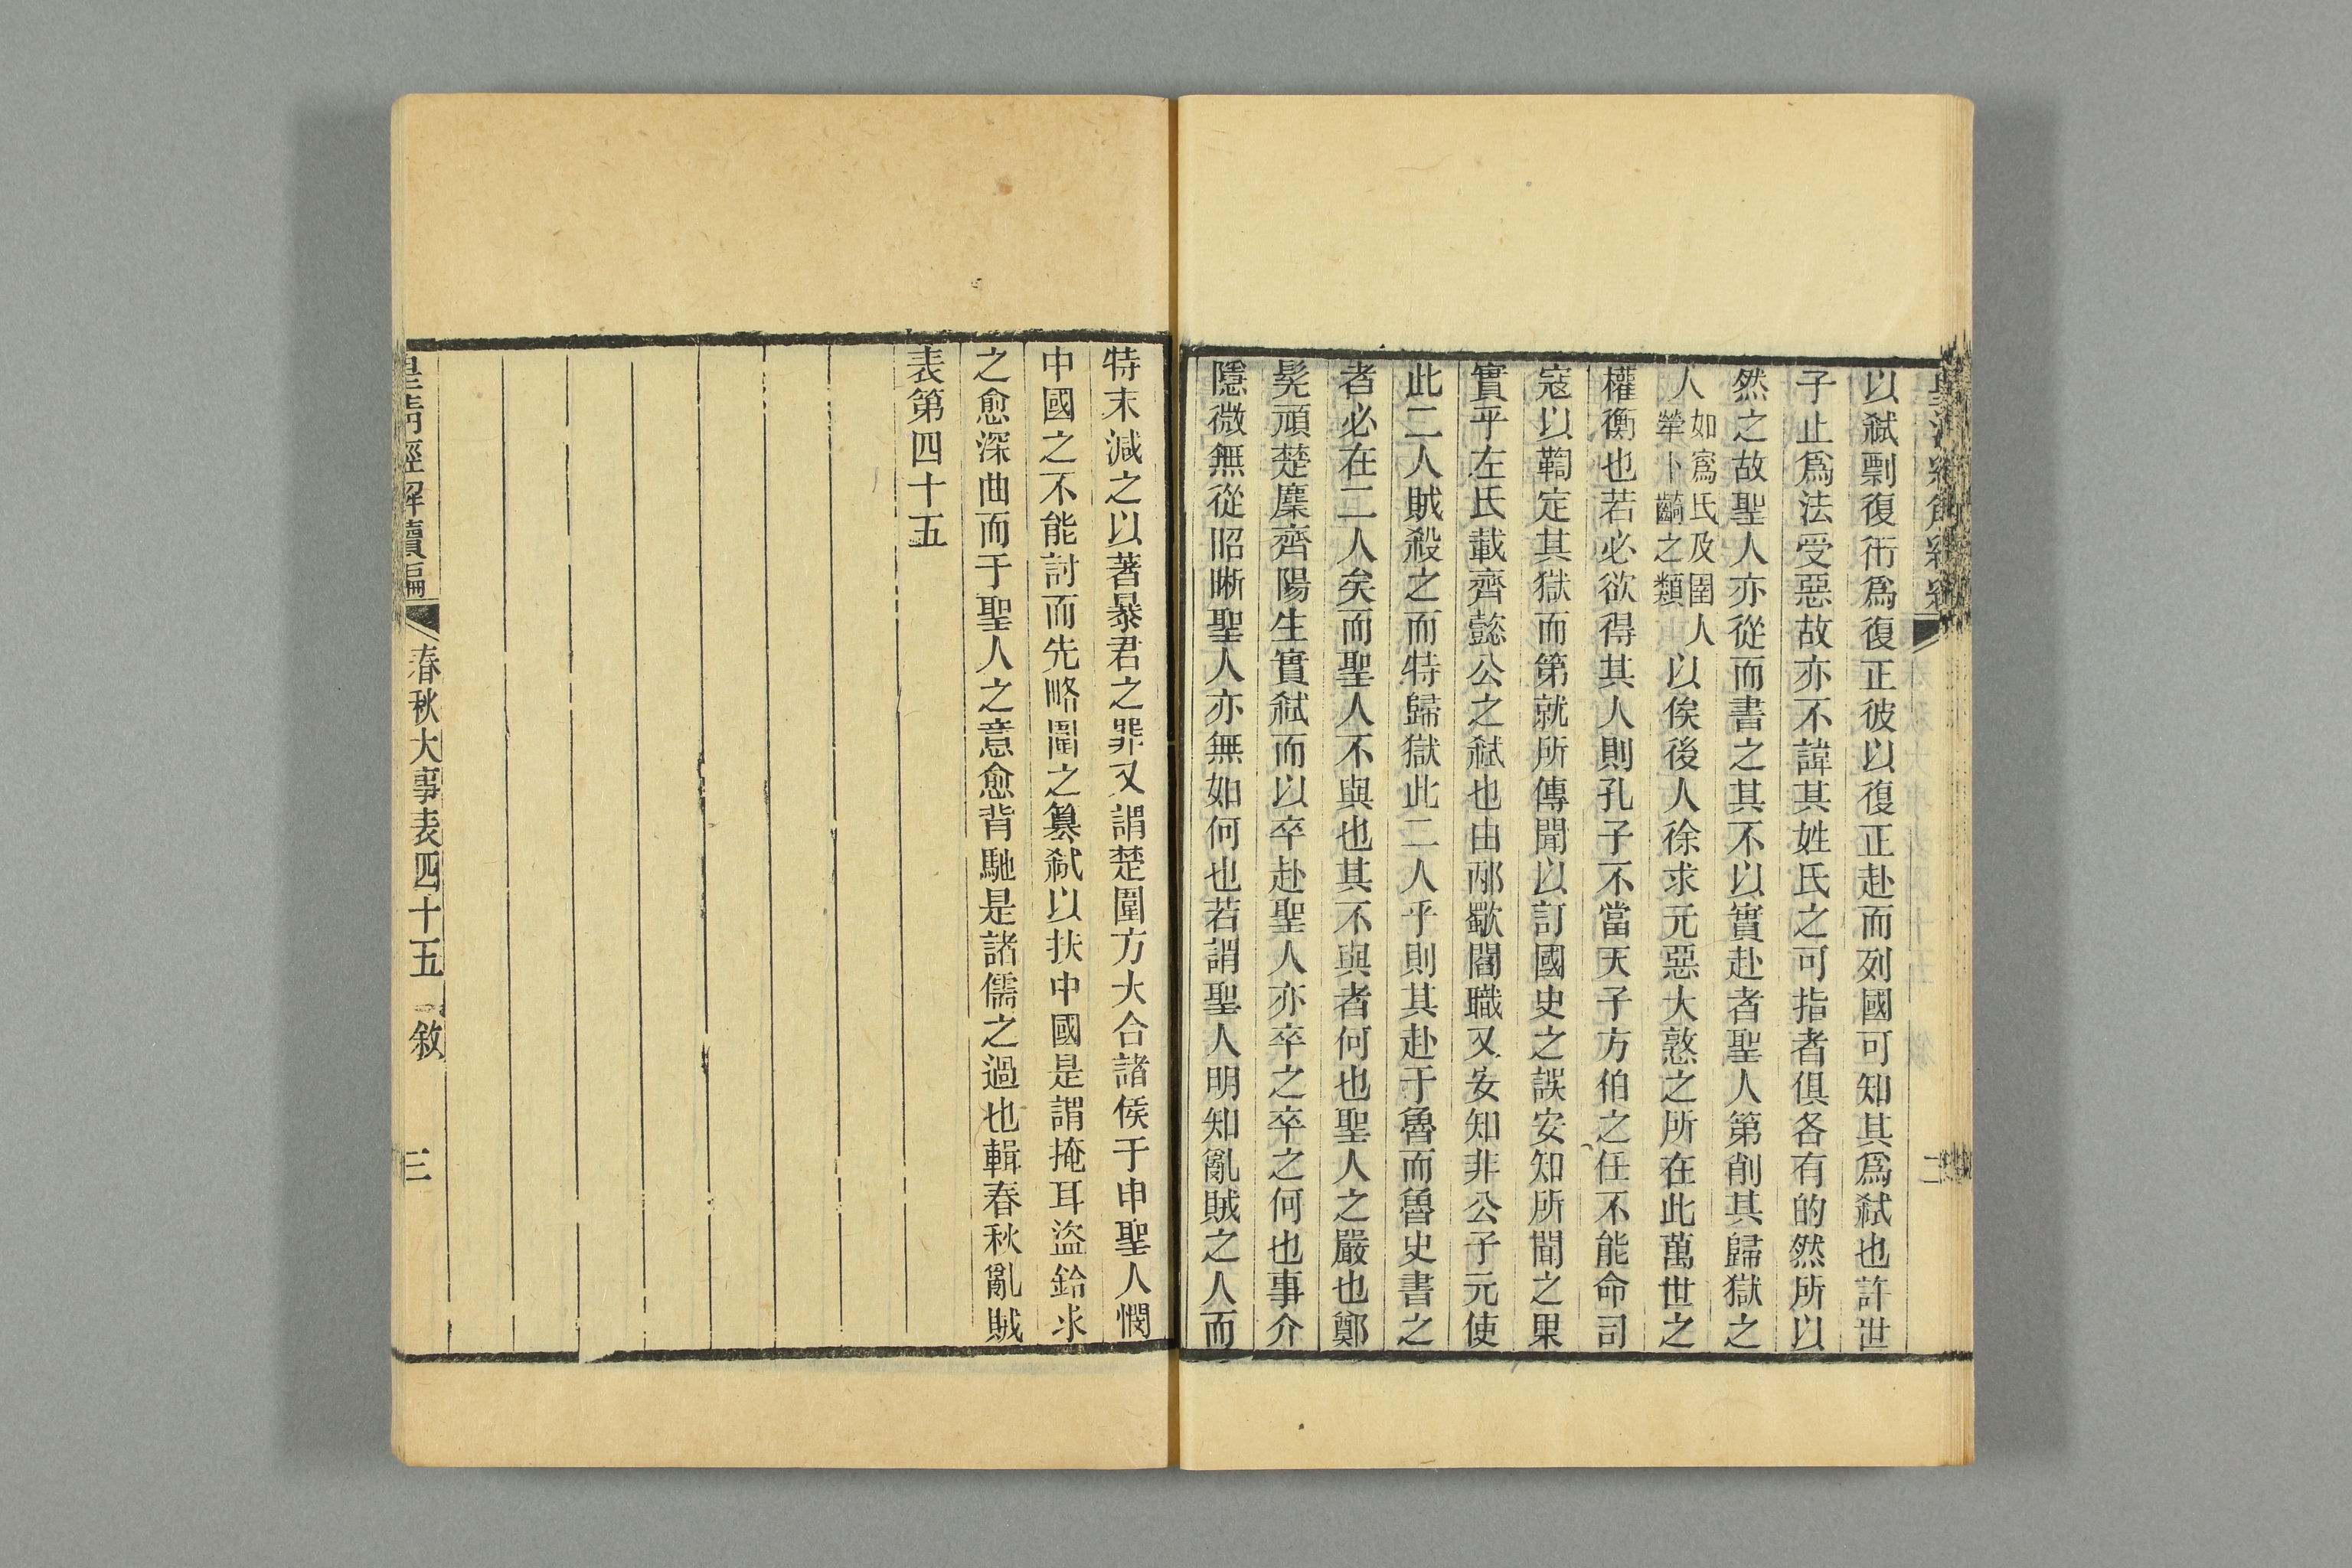 以弒剽復衎爲復正彼以復正赴而列國可知其爲弒也許世
子止爲法受惡故亦不諱其姓氏之可指者俱各有的然所以
然之故聖人亦從而書之其不以實赴者聖人第削其歸獄之
人如寪氏及圉人犖卜齮之類以俟後人徐求元惡大憝之所在此萬世之
權衡也若必欲得其人則孔子不當天子方伯之任不能命司
寇以鞫定其獄而第就所傳聞以訂國史之誤安知所聞之果
實乎左氏載齊懿公之弒也由邴歜閻職又安知非公子元使
此二人賊殺之而特歸獄此二人乎則其赴于魯而魯史書之
者必在二人矣而聖人不與也其不與者何也聖人之嚴也鄭
髠頑楚麇齊陽生實弒而以卒赴聖人亦卒之卒之何也事介
隱微無從昭晰聖人亦無如何也若謂聖人明知亂賊之人而
特末減之以著暴君之罪又謂楚圍方大合諸侯于申聖人憫
中國之不能討而先略圍之篡弒以扶中國是謂掩耳盜鈴求
之愈深曲而于聖人之意愈背馳是諸儒之過也輯春秋亂賊
表第四十五
皇清經解續編
春秋大事表四十五 敘
三
二